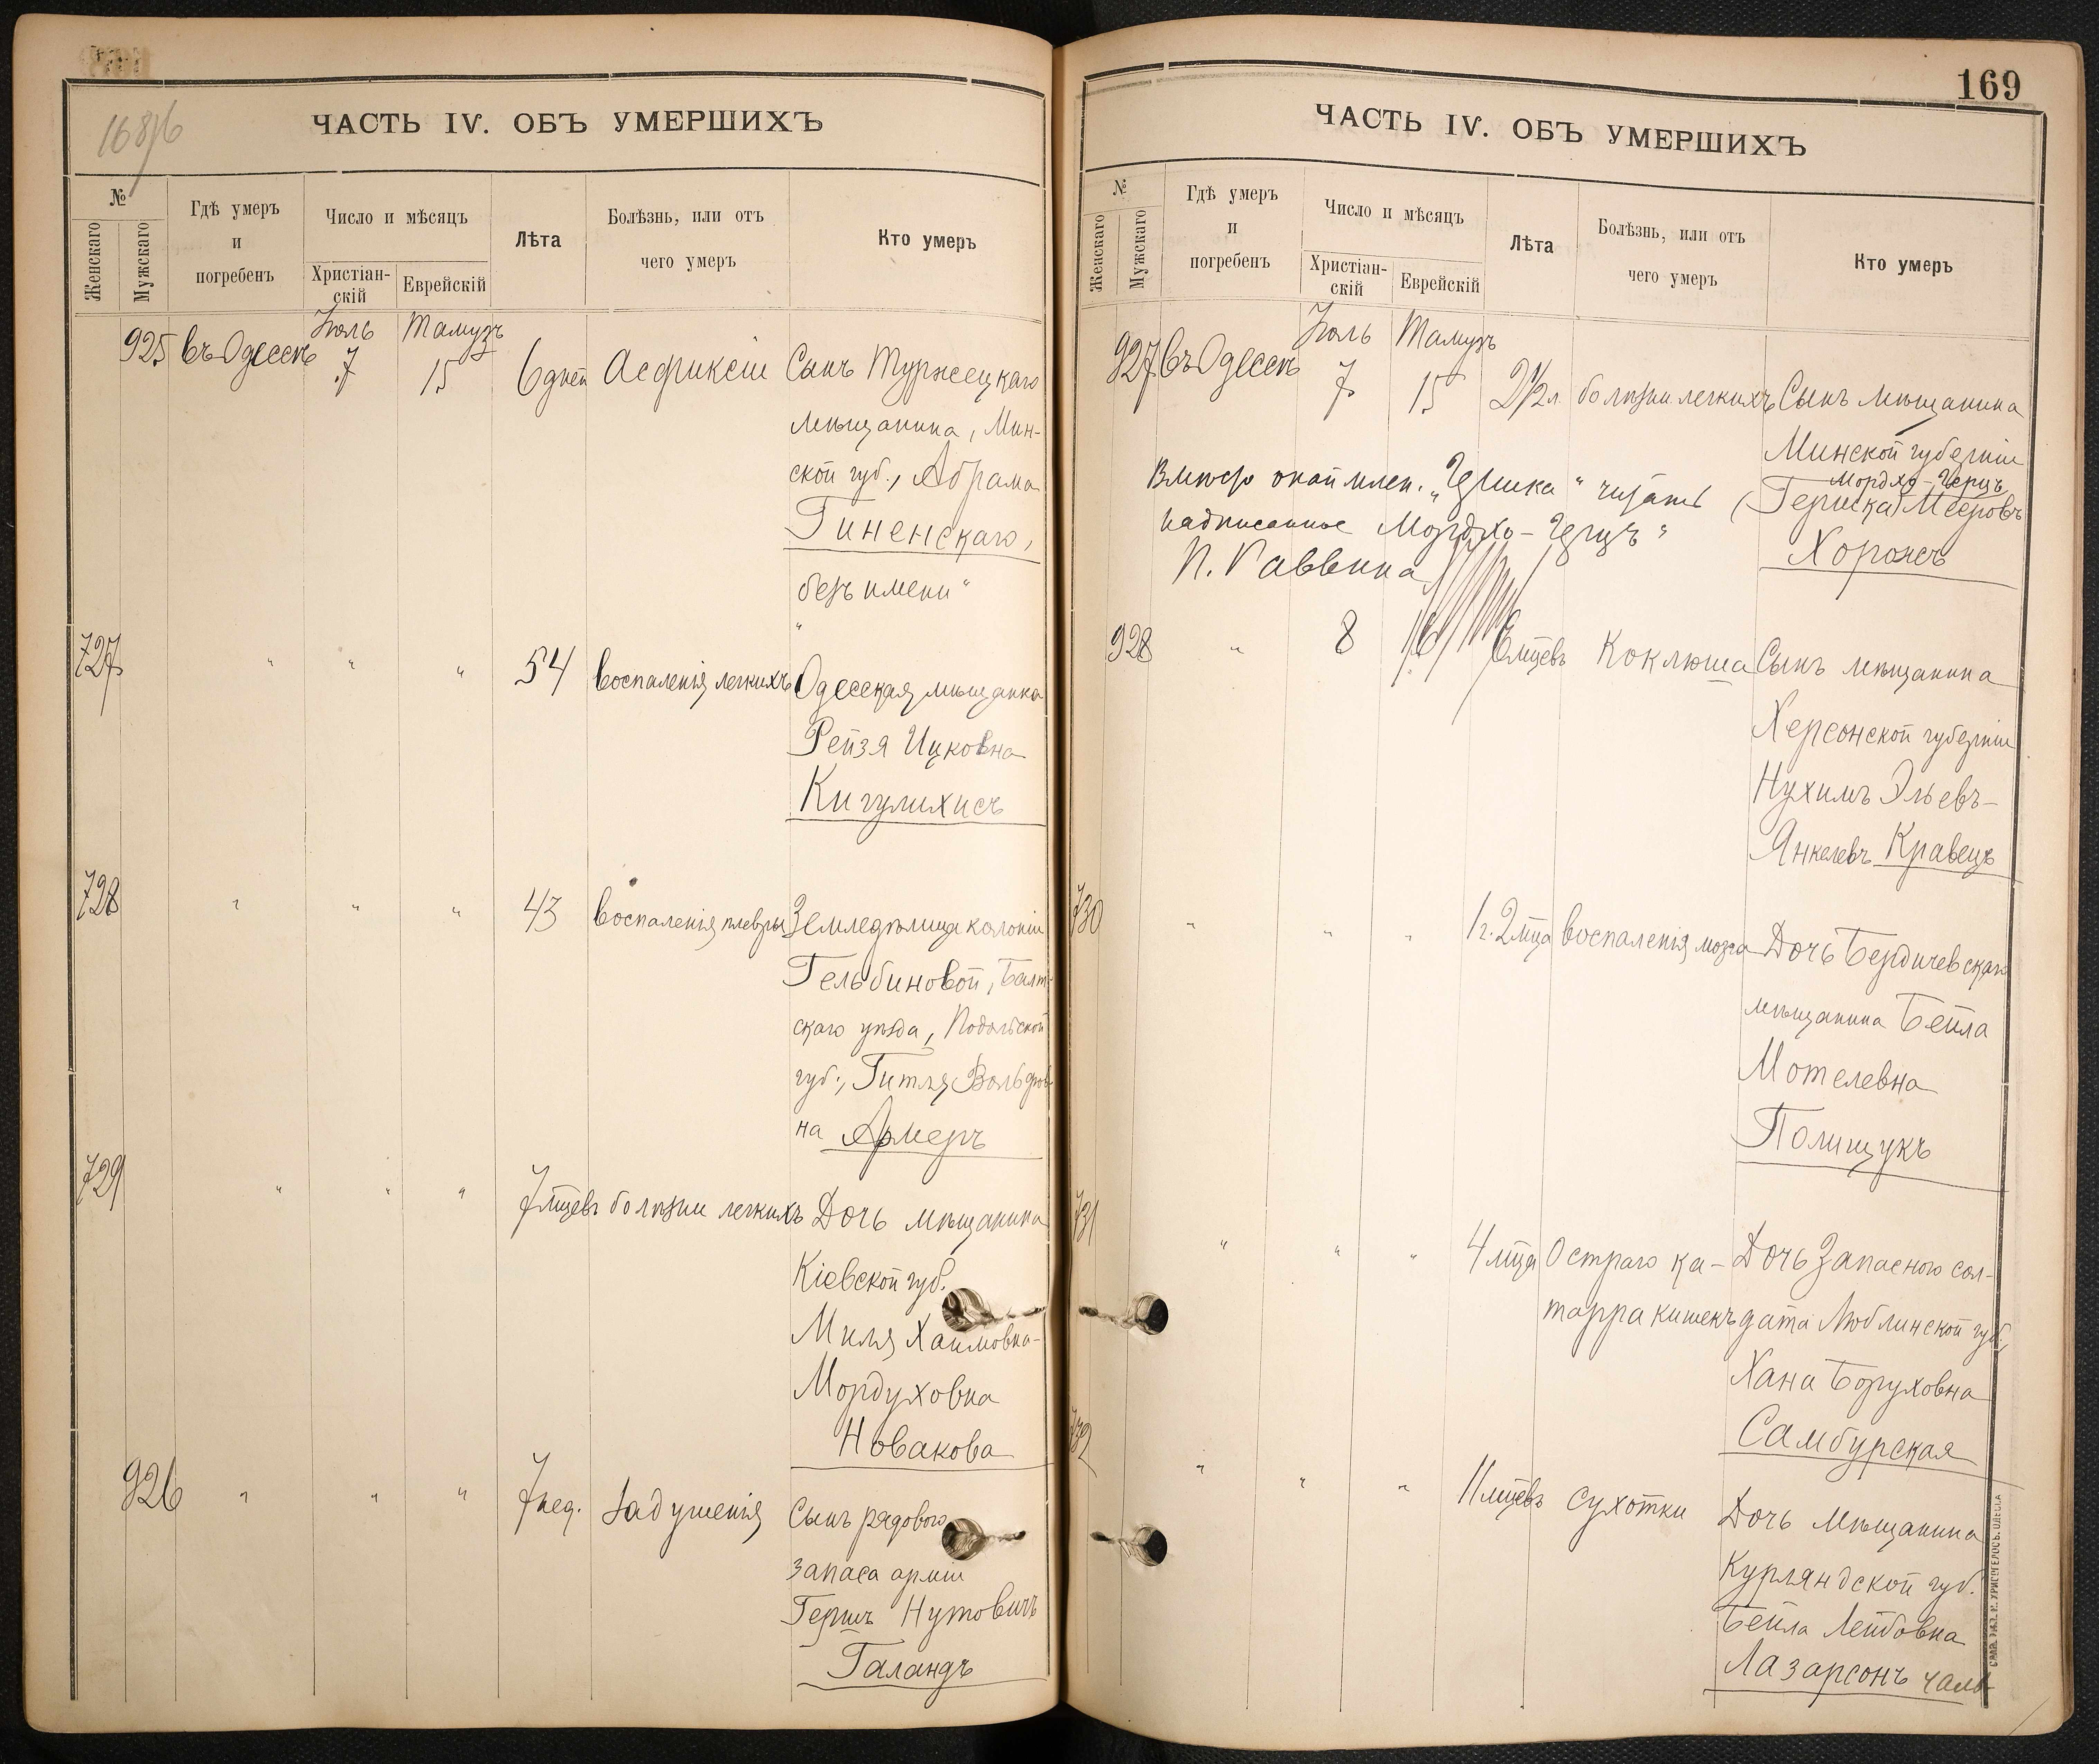 168/6
ЧАСТЬ IV. ОБЪ УМЕРШИХЪ
№
Женскаго
Мужскаго
Гдѣ умеръ
и
погребенъ
Число и мѣсяцъ
Христіан-
скій
Еврейскій
Лѣта
Болѣзнь, или отъ
чего умеръ
Кто умеръ
Іюль Тамузъ
925 въ Одессѣ 7 15 6 дней Асфиксіи Сынъ Туржецкаго
мѣщанина, Мин-
ской губ., Абрама
Гиненскаго,
безъ имени"
727 " " " 54 воспаленія легкихъ Одесская мѣщанка
Рейзя Ицковна
Кигулихисъ
728 " " " 43 воспаленія плевры Земледѣлица колоніи
Гельбиновой, Балт-
скаго уѣзда, Подольской
губ., Гитля Вольфов-
на Армеръ
729 " " " 7 мцевъ болѣзни легкихъ Дочь мѣщанина
Кіевской губ.
Миля Хаимовна-
Мордуховна
Новакова
926 " " " 7 нед. Задушенія Сынъ рядового
запаса арміи
Гершъ Нутовичъ
Галандъ
169
ЧАСТЬ IV. ОБЪ УМЕРШИХЪ
№
Женскаго
Мужскаго
Гдѣ умеръ
и
погребенъ
Число и мѣсяцъ
Христіан-
скій
Еврейскій
Лѣта
Болѣзнь, или отъ
чего умеръ
Кто умеръ
Іюль Тамузъ
927 въ Одессѣ 7 15 2½ л. болѣзни легкихъ Сынъ мѣщанина
Минской губерніи
Мордхо-Герцъ
(Гершка) Мееровъ
Хоронсъ
Вмѣсто окаймлен. "Гершка" читать
надписанное Мордхо-Герцъ"
П. Раввина
928 " 8 16 6 мцевъ Коклюша Сынъ мѣщанина
Херсонской губерніи
Нухимъ Эльевъ-
Янкелевъ Кравецъ
730 " " " 1 г. 2 мца воспаленія мозга Дочь Бердичевскаго
мѣщанина Бейла
Мотелевна
Полищукъ
731 " " " 4 мца Остраго ка- Дочь Запасного сол-
тарра кишекъ дата Люблинской губ.
Хана Боруховна
Самбурская
732 " " " 11 мцевъ Сухотки Дочь мѣщанина
Курляндской губ.
Бейла Лейбовна
Лазарсонъ